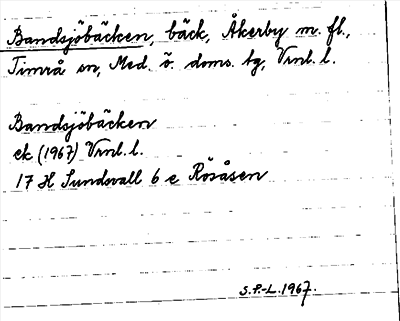 Bandsjöbäcken, bäck, Åkerby m. fl.,
Timrå sn, Med. ö. doms. tg, Vrnl. l.
Bandsjöbäcken
ek (1967) Vrnl. l.
17 H Sundsvall 6 e Rösåsen
S.P.-L. 1967.